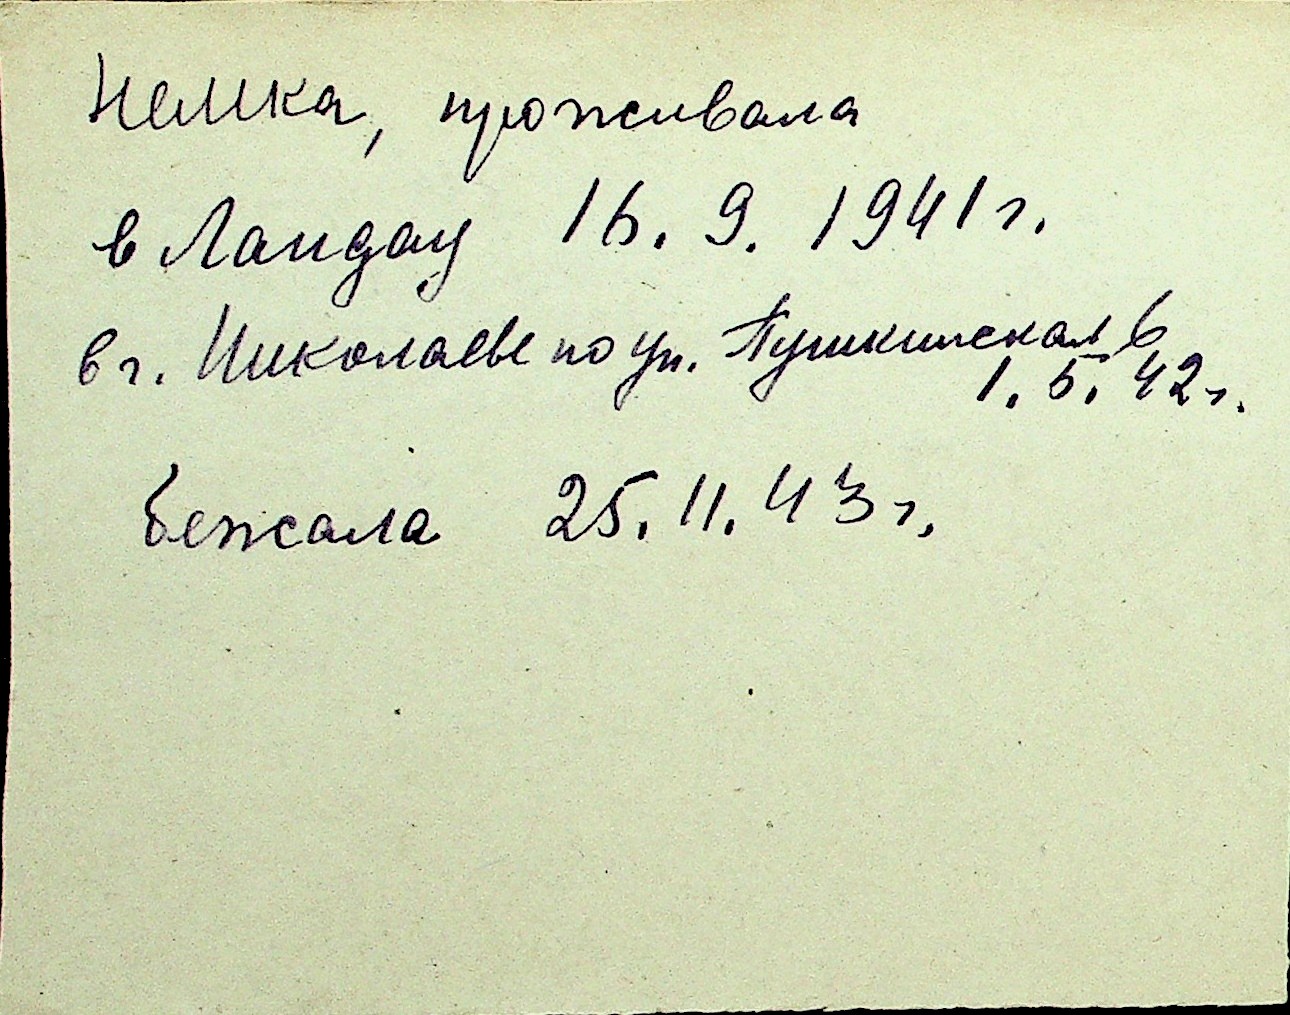 Немка, проживала
в Ландау 16. 9. 1941 г.
в г. Николаеве по ул. Пушкинская 6
1. 5. 42 г.
бежала 25. 11. 43 г.